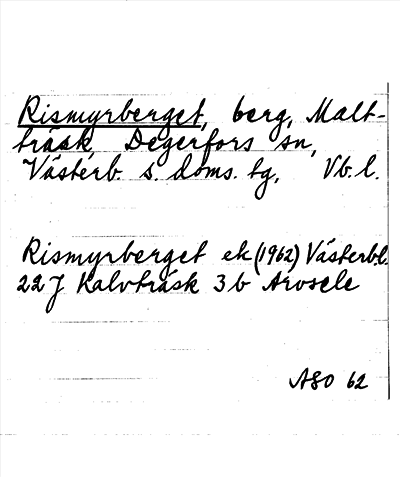 Rismyrberget, berg, Malt-
träsk, Degerfors sn,
Västerb. s. doms. tg, Vb. l.
Rismyrberget ek (1962) Västerb.l.
22 J Kalvträsk 3 b Arvsele
ASO 62